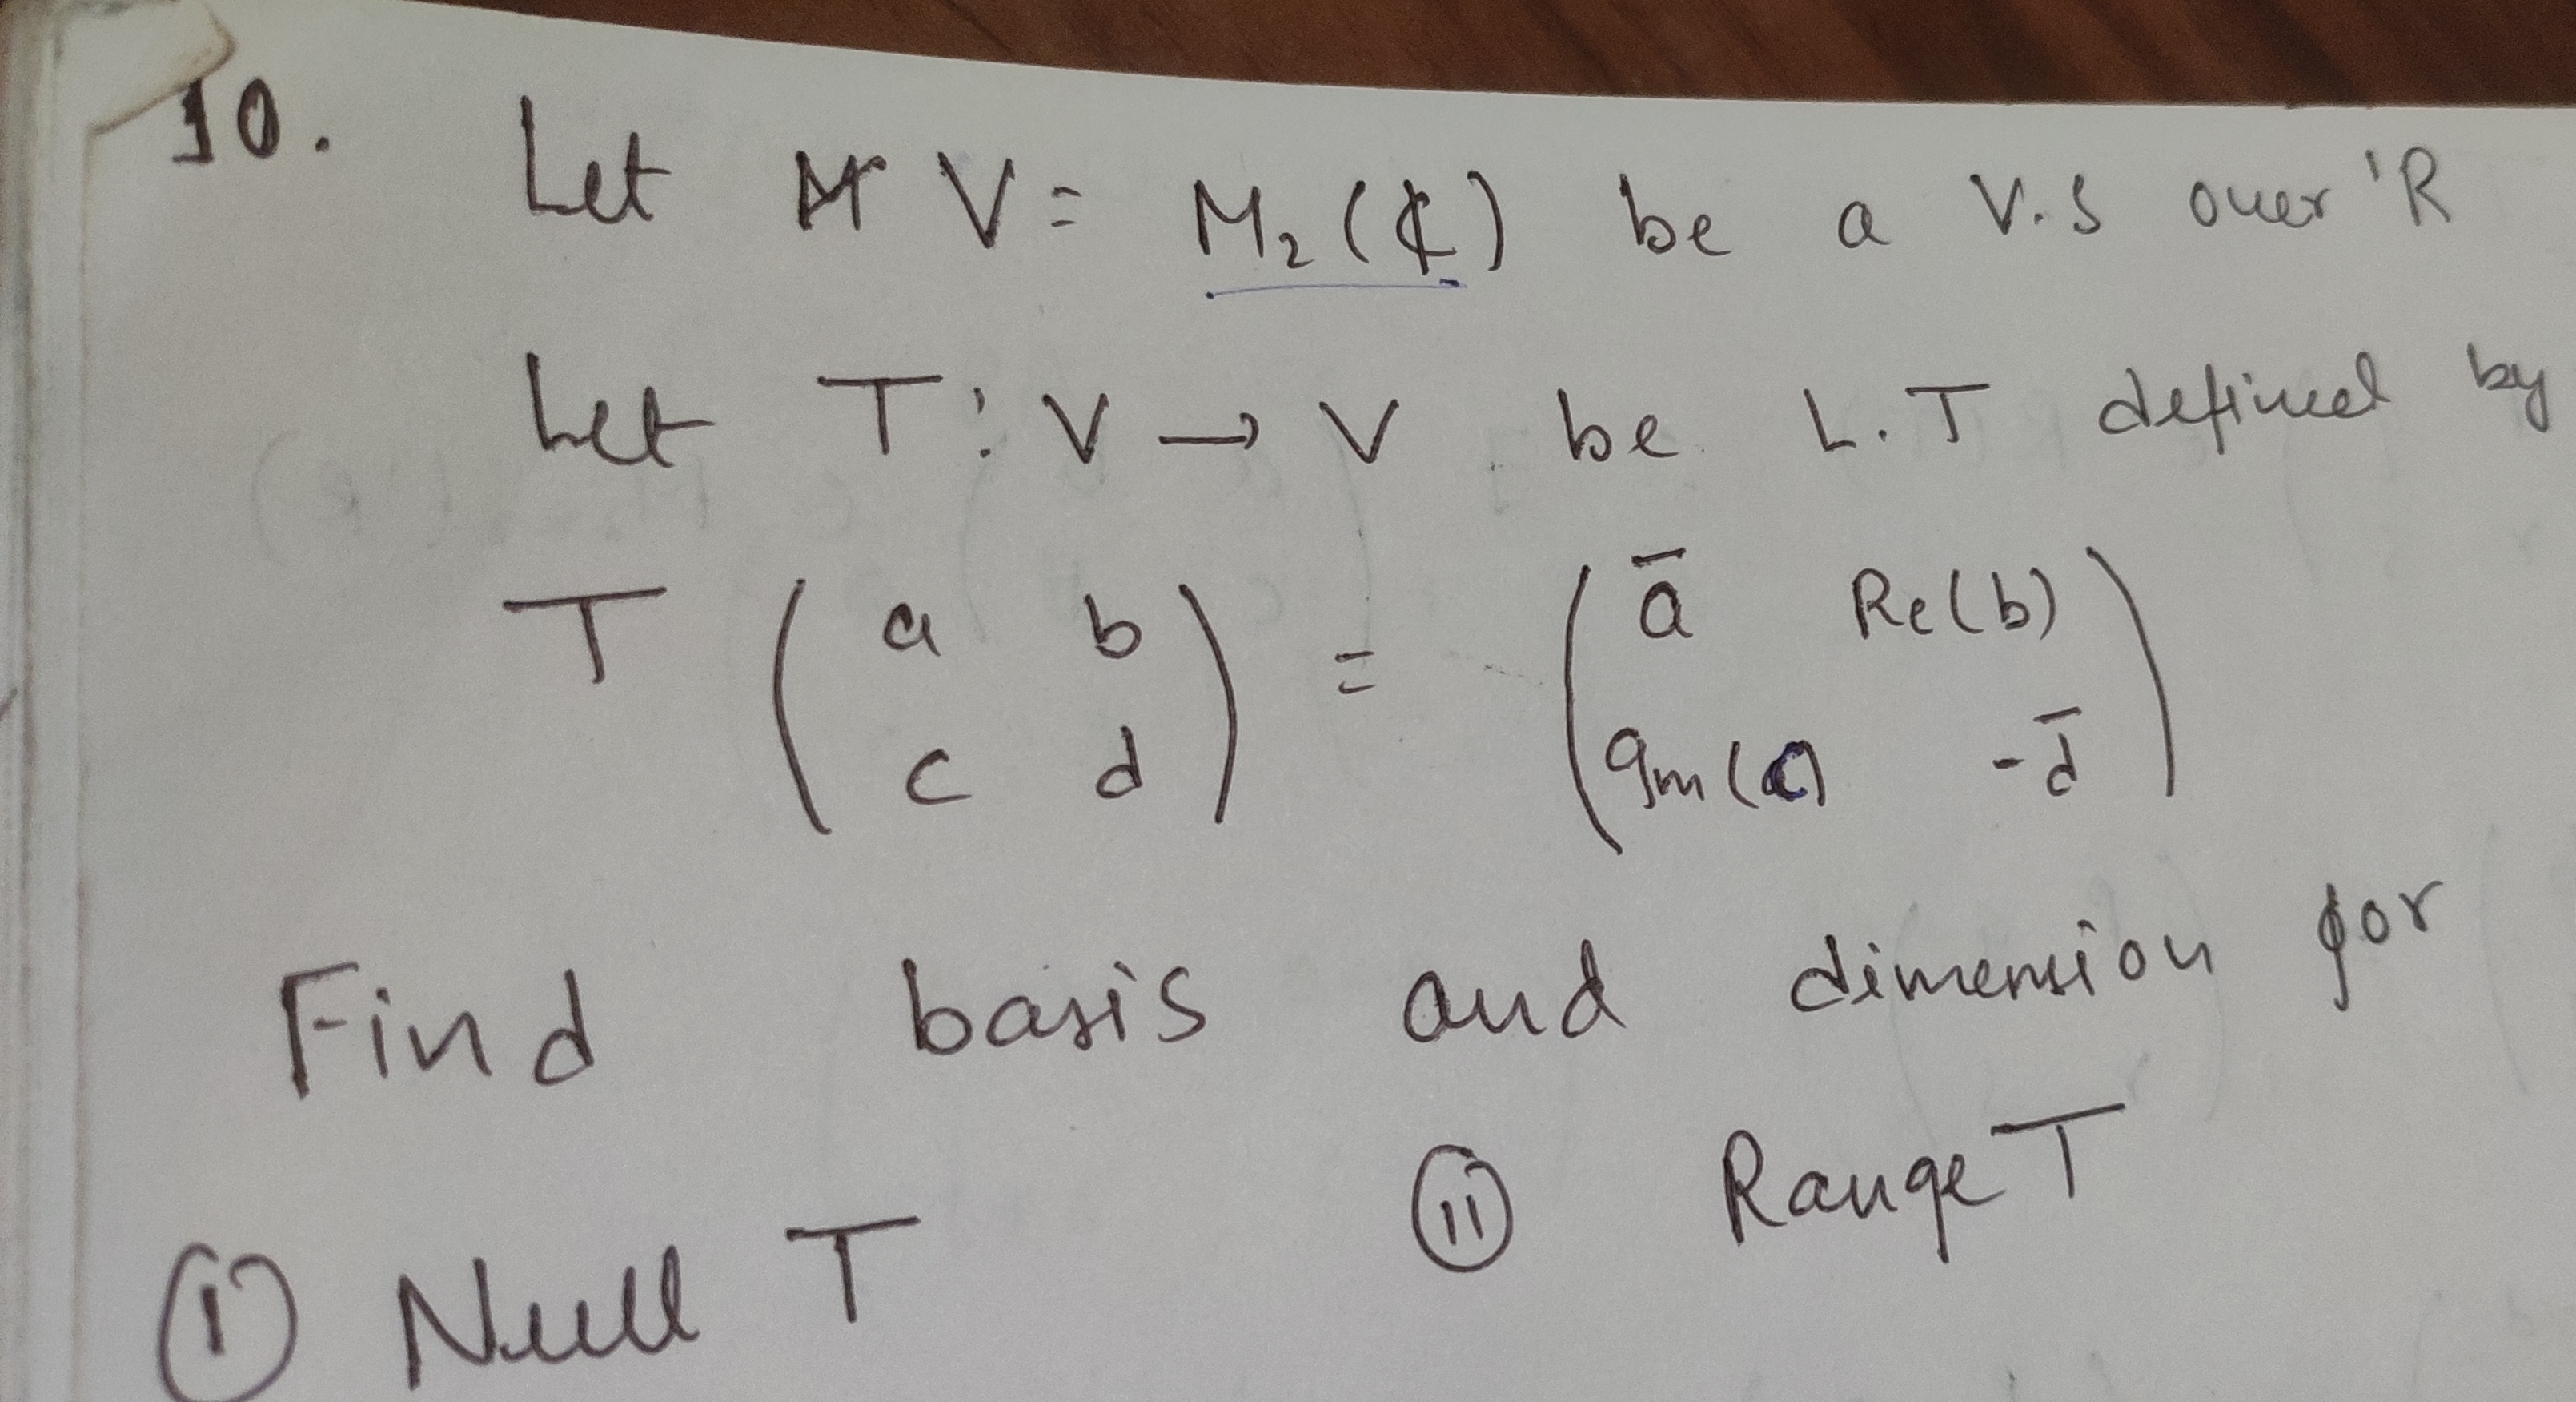 10. Let V = M₂(ℂ) be a V.S over ℝ
Let T : V → V be L.T defined by
T ( a b ) = ( a̅ Re(b) )
( c d ) ( Im(c) -d̅ )
Find basis and dimension for
① Null T ⑪ Range T